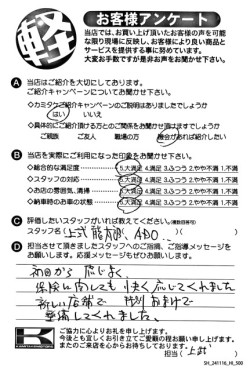 軽
お客様アンケート
当店では、お買い上げ頂いたお客様の声を可能
な限り現場に反映し、お客様により良い商品と
サービスを提供する事に努めています。
大変お手数ですが是非お声をお聞かせ下さい。
A 当店はご紹介を大切にしております。
ご紹介キャンペーンについてお聞かせ下さい。
◇カミタケご紹介キャンペーンのご説明はありましたでしょうか
はい いいえ
◇具体的にご紹介頂ける方とのご関係をお聞かせ頂けますでしょうか
ご親族 ご友人 職場の方 機会があれば紹介したい
B 当店を実際にご利用になった印象をお聞かせ下さい。
◇総合的な満足度 5.大満足 4.満足 3.ふつう 2.やや不満 1.不満
◇スタッフの対応 5.大満足 4.満足 3.ふつう 2.やや不満 1.不満
◇お店の雰囲気、清掃 5.大満足 4.満足 3.ふつう 2.やや不満 1.不満
◇納車時のお車の状態 5.大満足 4.満足 3.ふつう 2.やや不満 1.不満
C 評価したいスタッフがいれば教えてください。(複数回答可)
スタッフ名( 上武 ADO.. )( )
D 担当させて頂きましたスタッフへのご指摘、ご指導メッセージを
お願いします。応援メッセージもぜひお願いします。
初日から 感じよく、
保険に関しても 快く 応じてくれました
新しい店舗で 特別 おまけで
整備してくれました。
ご協力に心よりお礼を申し上げます。
今後とも宜しくお引き立てご愛顧の程お願い申し上げます。
またのご来店を心からお待ちしております。
担当( 上武 )
SH_241116_HI_500